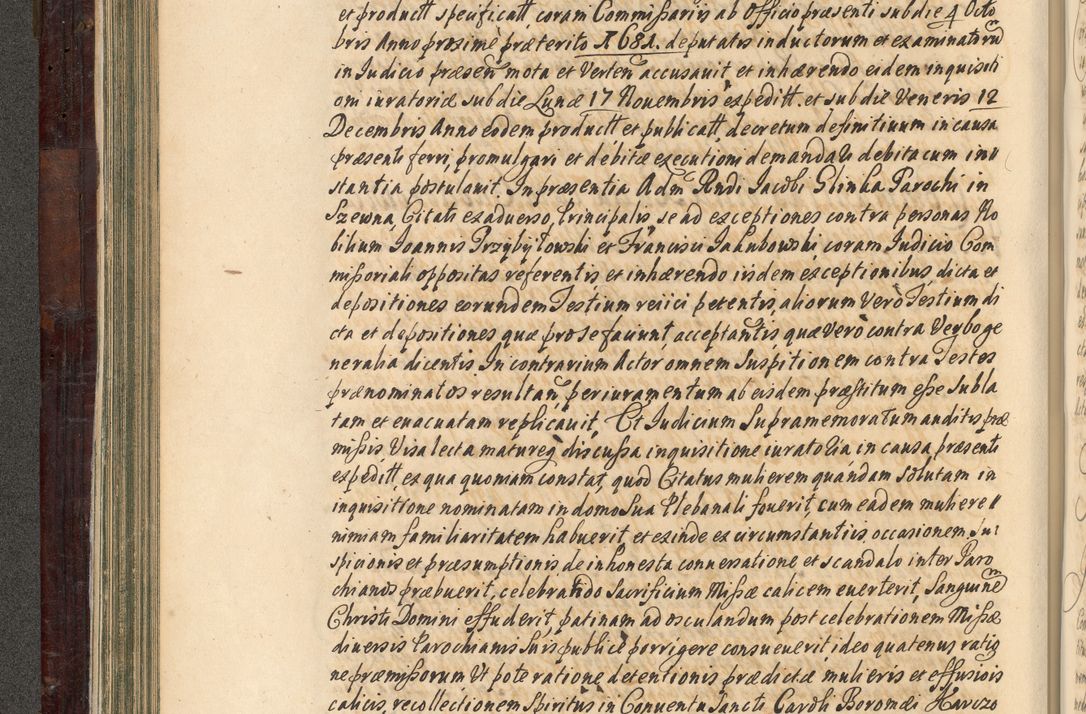 et productt specificatt coram Commissariis ab Officio præsenti sub die 4 Octo
bris Anno proximè præterito 1681. deputatis inductorum et examinatorũ
in Iudicio præseñ mota et Verteñ accusauit et inhærendo eidem inquisiti
oni iuratoriæ sub die Lunæ 17 Nouembris expeditt. et sub die Veneris 12
Decembris Anno eodem productt et publicatt, decretum definitiuum in causa
præsenti ferri, promulgari et debitæ executioni demandari debita cum in
stantia postulauit. In præsentia Adm Rndi Iacobi Glinka Parochi in
Szewna, Citati ex aduerso, Principalis, se ad exceptiones contra personas No
bilium Ioannis Przybyłowski et Francisci Iakubowski coram Iudicio Com
missoriali oppositas referentis, et inhærendo iisdem exceptionibus dicta et
depositiones eorundem Testium reiici petentis, aliorum Verò Testium di
cta et depositiones quæ pro se faciunt, acceptantis, quæ Verò contra Verbo ge
neralia dicentis. In contrarium Actor omnem Suspitionem contra Testes
prænominatos resultañ, per iuramentum ab eisdem præstitum esse Subla
tam et euacuatam replicauit. Et Iudicium Supramemoratum auditis præ
missis, Visa lecta matureq́ discussa inquisitione iuratoria in causa præsenti
expeditt, ex qua quoniam constat, quod Citatus mulierem quándam solutam in
inquisitione nominatam in domo Sua Plebanali fouerit, cum eadem muliere
nimiam familiaritatem habuerit, et exinde ex circumstantiis, occasionem Su
spicionis et præsumptionis de inhonesta conuersatione et scandalo inter Paro
chianos præbuerit, celebrando Sacrificium Missæ calicem euerterit, Sanguinẽ
Christi Domini effuderit, patinam ad osculandum post celebrationem Missæ
diuersis Parochianis Suis publicè porrigere consueuerit, ideo quatenus ratio
ne præmissorum Ut pote ratione detentionis prædictæ mulieris et effusiois
calicis, recollectionem Spiritus in Conuentu Sancti Caroli Boromæi